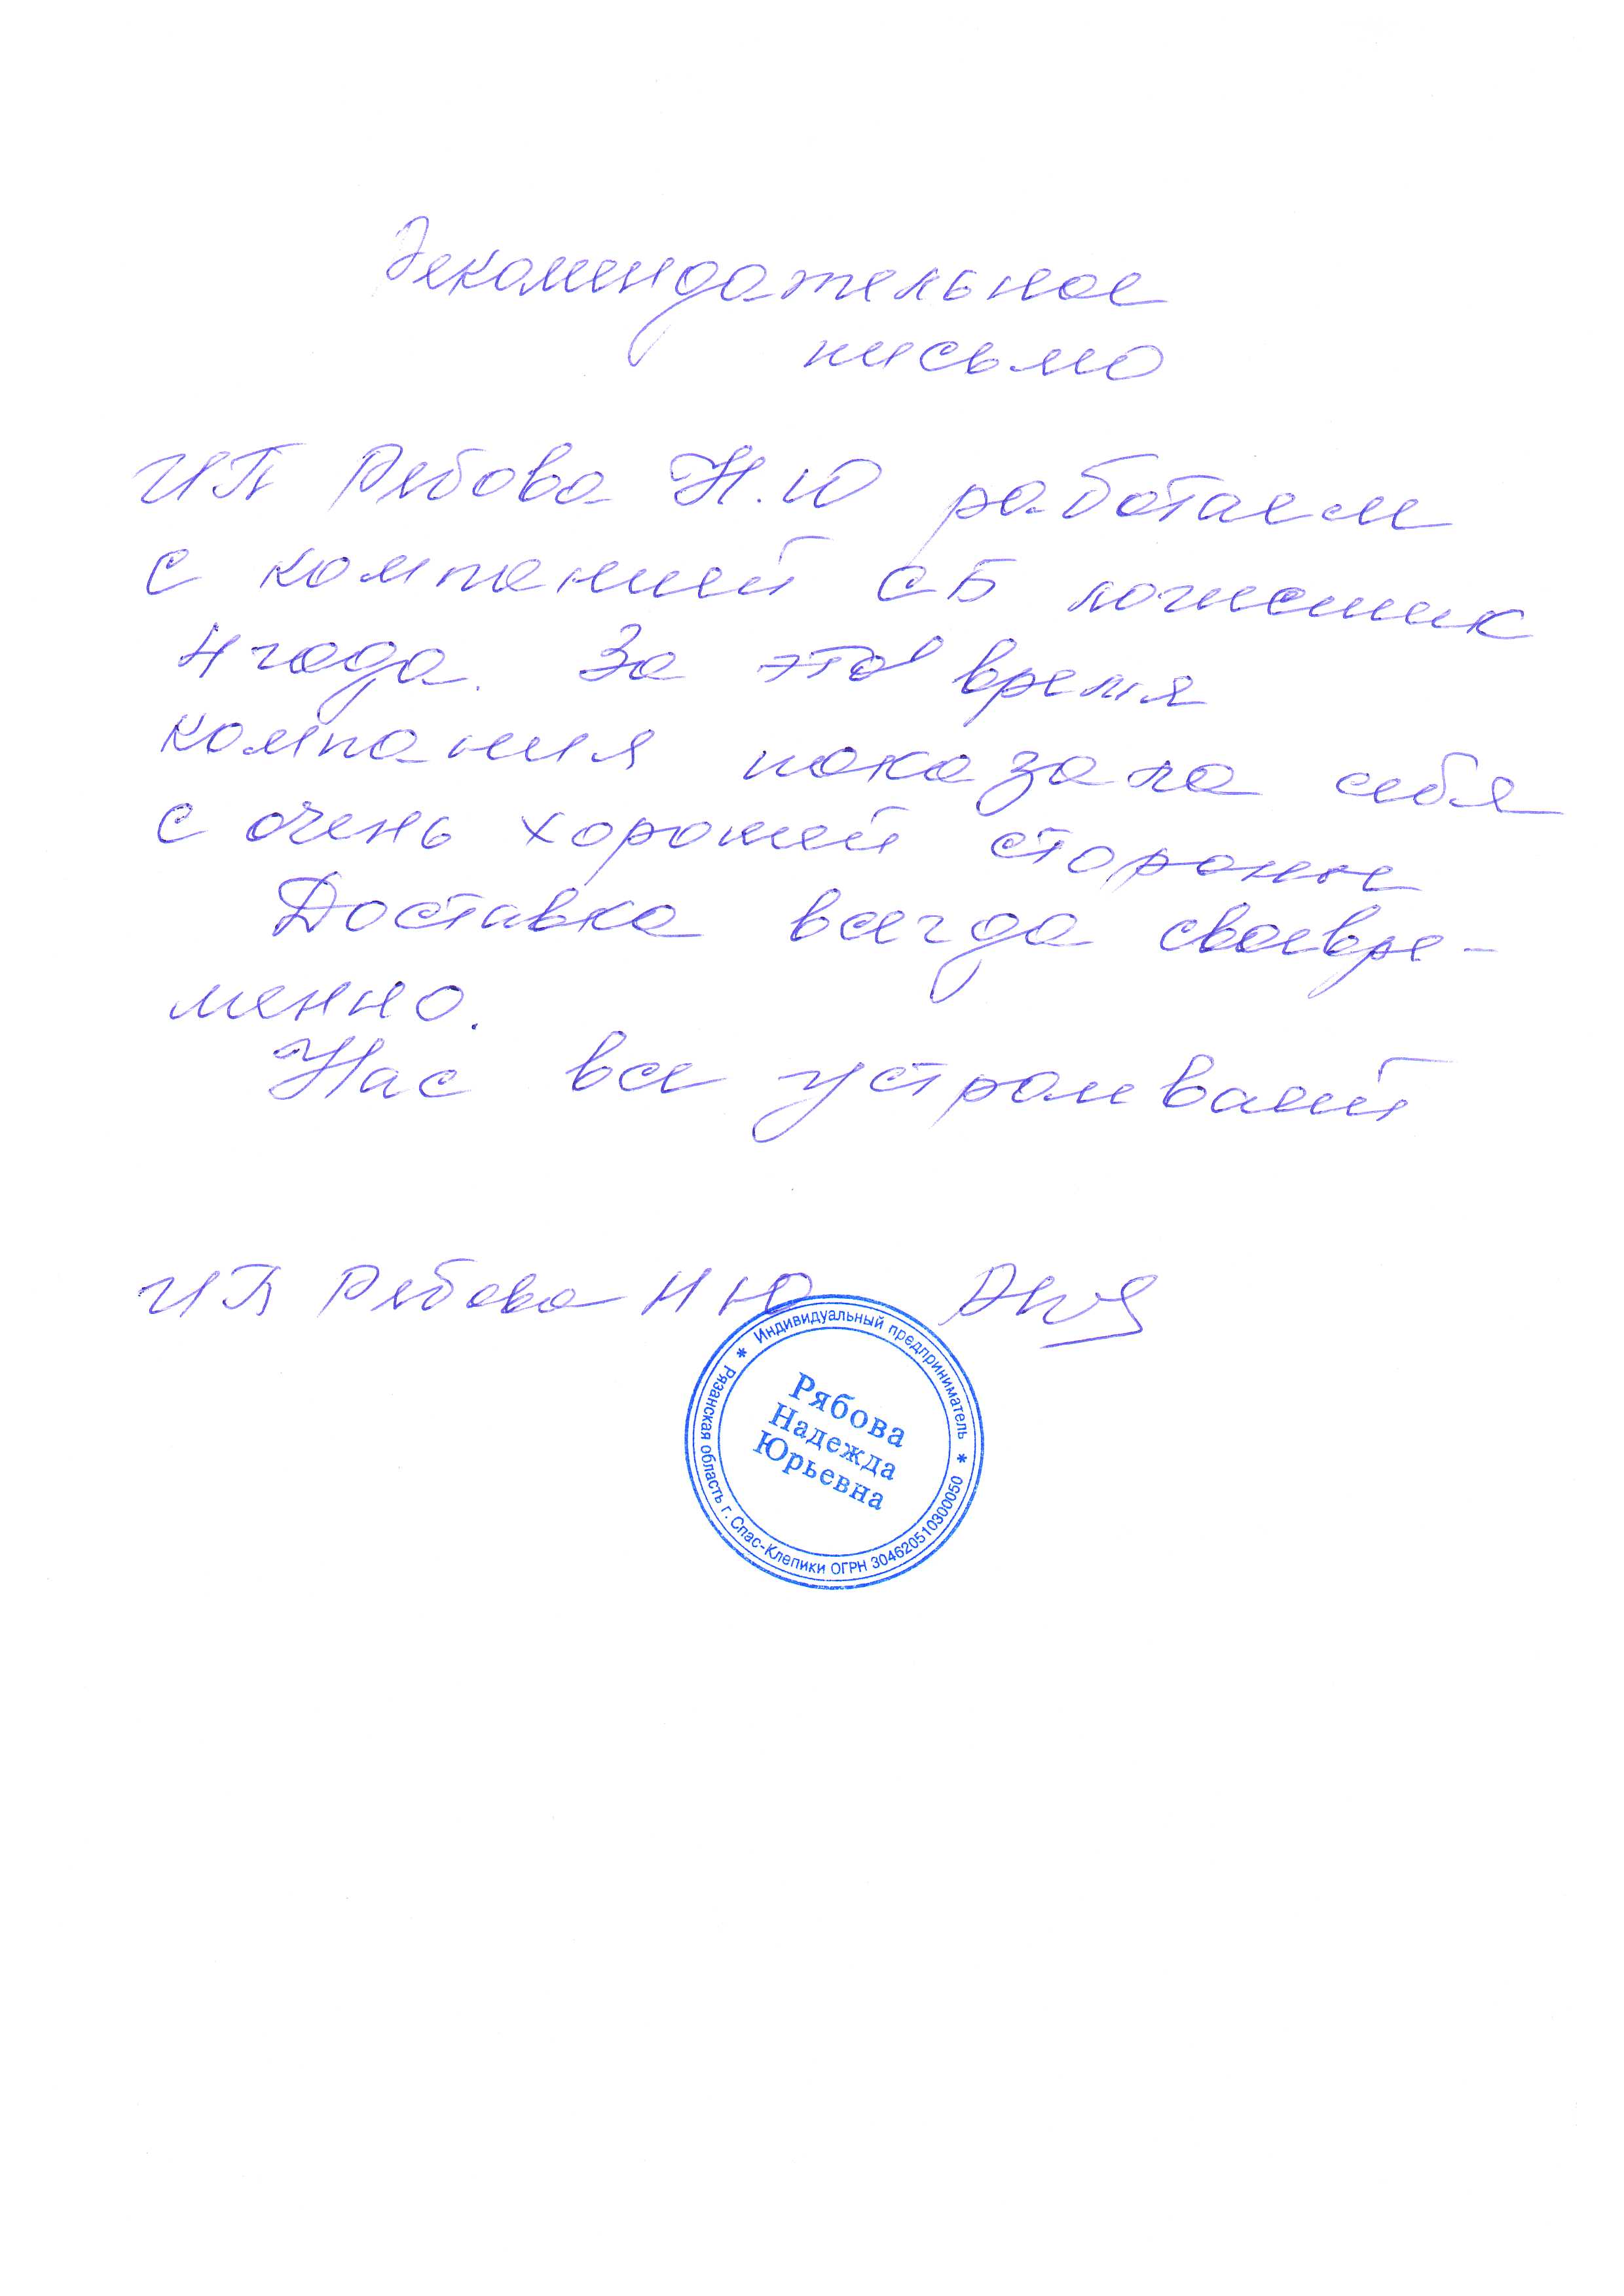 Рекомендательное
письмо
ИП Рябова Н.Ю работаем
с компанией СБ логистик
4 года. За это время
компания показала себя
с очень хорошей стороны
Доставка всегда своевре-
менно.
Нас все устраивает
ИП Рябова Н Ю
Индивидуальный предприниматель
Рябова
Надежда
Юрьевна
Рязанская область г. Спас-Клепики ОГРН 304620510300050